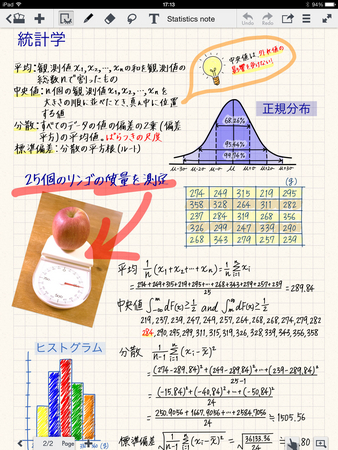 iPad
17:13
94%
Statistics note
統計学
平均:観測値x₁,x₂,…,xₙの和を観測値の
総数nで割ったもの
中央値:n個の観測値x₁,x₂,…,xₙを
大きさの順に並べたとき,真ん中に位置
する値
分散:すべてのデータの値の偏差の2乗(偏差
平方)の平均値.ばらつきの尺度
標準偏差:分散の平方根(ルート)
中央値は,外れ値の
影響を受けない!
正規分布
68.26%
95.44%
99.74%
μ-3σ μ-2σ μ-σ μ μ+σ μ+2σ μ+3σ
25個のリンゴの質量を測定
(g)
274 249 315 219 295
358 328 264 311 282
237 284 319 268 356
326 299 247 339 290
268 343 279 257 239
平均 1/n (x₁+x₂+…+xₙ)=1/n Σxᵢ
=(274+249+315+219+293+…+268+343+279+257+239)/25=289.84
中央値 ∫dF(x)≥1/2 and ∫dF(x)≥1/2
219, 237, 239, 247, 249, 257, 264, 268, 268, 274, 279, 282
284, 290, 295, 299, 311, 315, 319, 326, 328, 339, 343, 356, 358
分散 1/(n-1) Σ(xᵢ-x̄)²
=((274-289.84)²+(249-289.84)²+…+(239-289.84)²)/(25-1)
=((-15.84)²+(-40.84)²+…+(-50.84)²)/24
=(250.9056+1667.9056+…+2584.7056)/24≒1505.56
ヒストグラム
標準偏差 √(1/(n-1) Σ(xᵢ-x̄)²)=√(36133.36/24)≒
80
2/2 Page